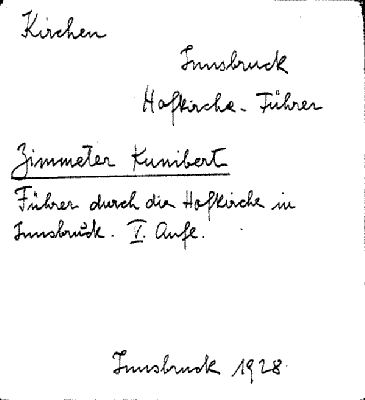 Kirchen
Innsbruck
Hofkirche - Führer
Zimmeter Kunibert
Führer durch die Hofkirche in
Innsbruck. V. Aufl.
Innsbruck 1928.